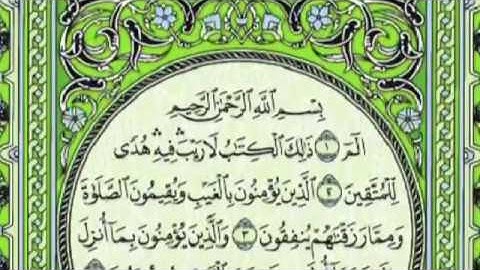 بِسْمِ اللَّهِ الرَّحْمَٰنِ الرَّحِيمِ
الٓمٓ ۝١ ذَٰلِكَ الْكِتَابُ لَا رَيْبَ ۛ فِيهِ ۛ هُدًى
لِّلْمُتَّقِينَ ۝٢ الَّذِينَ يُؤْمِنُونَ بِالْغَيْبِ وَيُقِيمُونَ الصَّلَاةَ
وَمِمَّا رَزَقْنَاهُمْ يُنفِقُونَ ۝٣ وَالَّذِينَ يُؤْمِنُونَ بِمَا أُنزِلَ